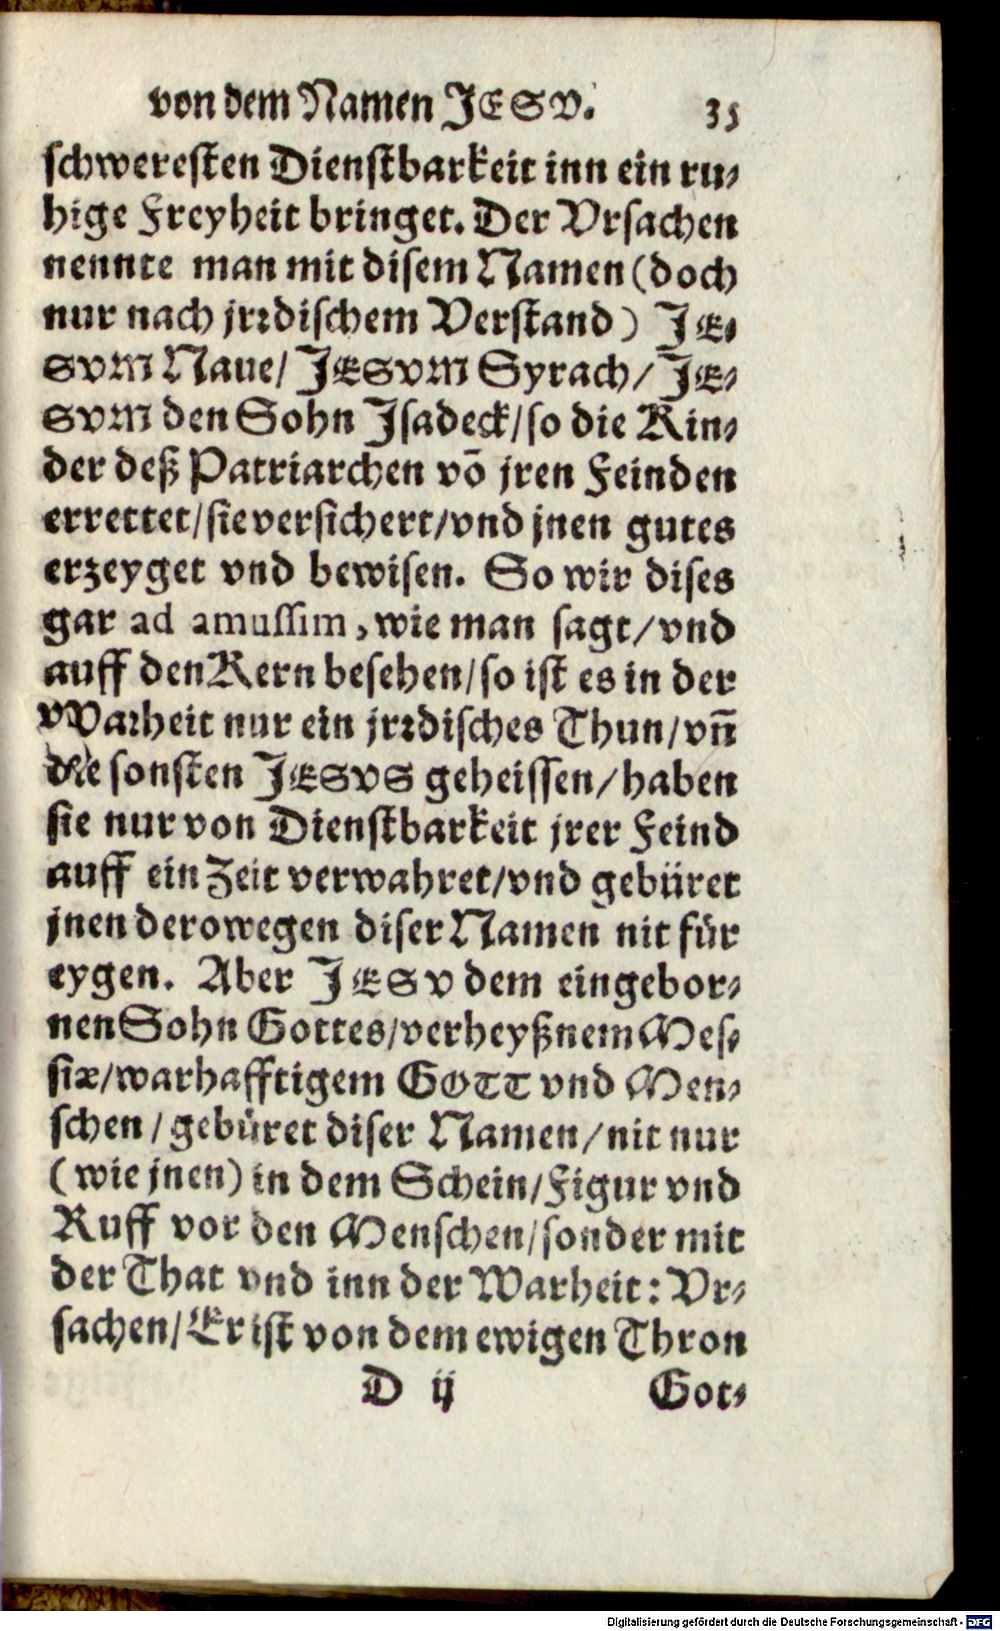 von dem Namen JESV. 35
schweresten Dienstbarkeit inn ein ru⸗
hige Freyheit bringet. Der Vrsachen
nennte man mit disem Namen (doch
nur nach jrꝛdischem Verstand) JE⸗
SVM Naue/ JESVM Syrach/ JE⸗
SVM den Sohn Isadeck/ so die Kin⸗
der deß Patriarchen võ jren Feinden
errettet/ sie versichert/ vnd jnen gutes
erzeyget vnd bewisen. So wir dises
gar ad amussim, wie man sagt/ vnd
auff den Kern besehen/ so ist es in der
Waꝛheit nur ein jrꝛdisches Thun/ vñ
die sonsten JESVS geheissen/ haben
sie nur von Dienstbarkeit jrer Feind
auff ein Zeit verwahret/ vnd gebüret
jnen derowegen diser Namen nit für
eygen. Aber JESV dem eingebor⸗
nen Sohn Gottes/ verheyßnem Mes⸗
siæ/ warhafftigem GOTT vnd Men⸗
schen/ gebüret diser Namen/ nit nur
(wie jnen) in dem Schein/ Figur vnd
Ruff vor den Menschen/ sonder mit
der That vnd inn der Warheit: Vr⸗
sachen/ Er ist von dem ewigen Thron
D ij Got⸗
Digitalisierung gefördert durch die Deutsche Forschungsgemeinschaft - DFG